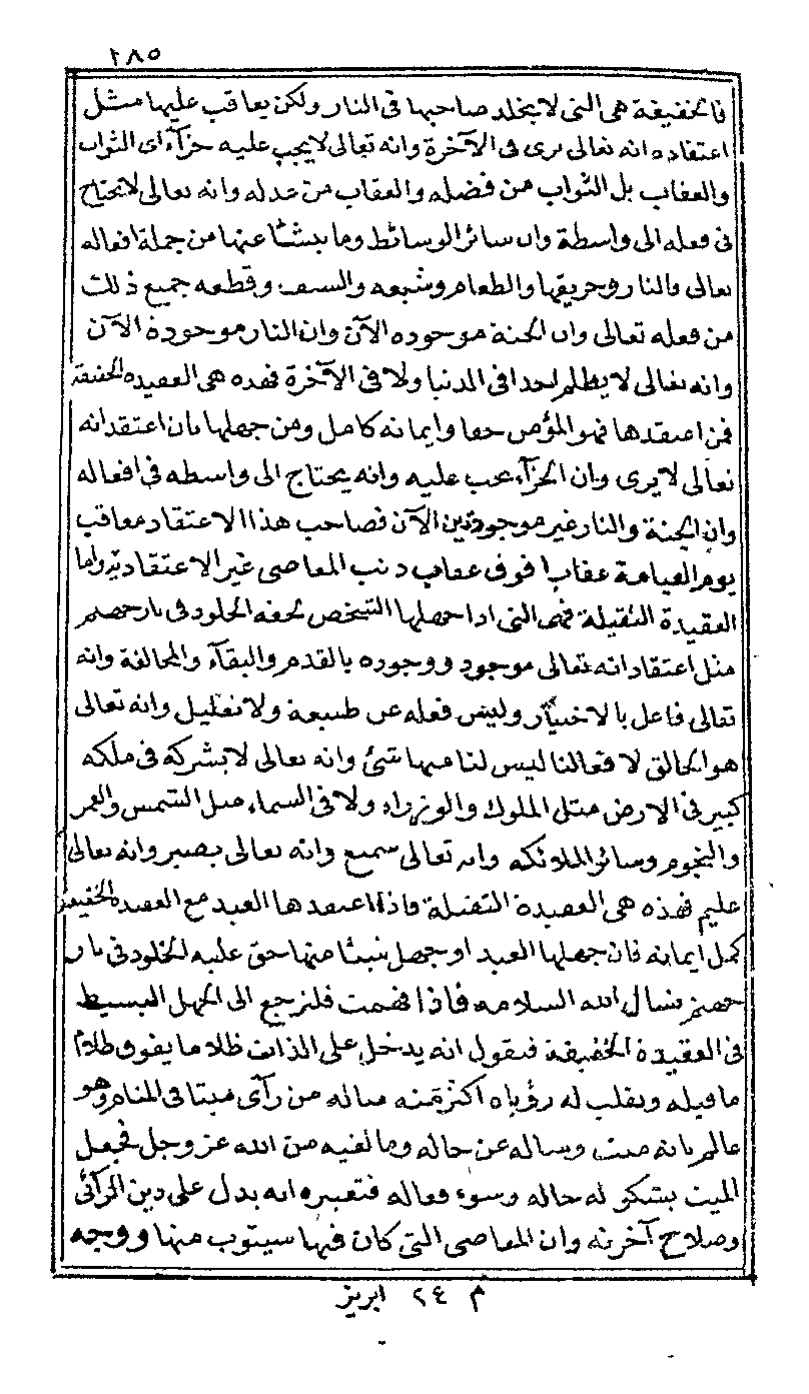 ٢٨٥
فالخفيفة هى التى لا يخلد صاحبها فى النار ولكن يعاقب عليها مثل
اعتقاده انه تعالى يرى فى الآخرة وانه تعالى لا يجب عليه جزآء اى الثواب
والعقاب بل الثواب من فضله والعقاب من عدله وانه تعالى لا يحتاج
فى فعله الى واسطة وان سائر الوسائط وما ينشأ عنها من جملة افعاله
تعالى فالنار وحريقها والطعام وشبعه والسيف وقطعه جميع ذلك
من فعله تعالى وان الجنة موجودة الآن وان النار موجودة الآن
وانه تعالى لا يظلم احدا فى الدنيا ولا فى الآخرة فهذه هى العقيدة الخفيفة
فمن اعتقدها فهو المؤمن حقا وايمانه كامل ومن جهلها بان اعتقد انه
تعالى لا يرى وان الجزآء يجب عليه وانه يحتاج الى واسطة فى افعاله
وان الجنة والنار غير موجودتين الآن فصاحب هذا الاعتقاد معاقب
يوم القيامة عقابا فوق عقاب ذنب المعاصى غير الاعتقادية واما
العقيدة الثقيلة فهى التى اذا جهلها الشخص لحقه الخلود فى نار جهنم
مثل اعتقاد انه تعالى موجود ووجوده بالقدم والبقآء والمخالفة وانه
تعالى فاعل بالاختيار وليس فعله عن طبيعة ولا تعليل وانه تعالى
هو الخالق لافعالنا ليس لنا فيها شئ وانه تعالى لا يشركه فى ملكه
كبير فى الارض مثل الملوك والوزراء ولا فى السماء مثل الشمس والقمر
والنجوم وسائر الملائكة وانه تعالى سميع وانه تعالى بصير وانه تعالى
عليم فهذه هى العقيدة الثقيلة فاذا اعتقدها العبد مع العقيدة الخفيفة
كمل ايمانه فان جهلها العبد او جهل شيئا منها حق عليه الخلود فى نار
جهنم نسال الله السلامة فاذا فهمت فلنرجع الى الجهل البسيط
فى العقيدة الخفيفة فنقول انه يدخل على الذات ظلاما يفوق ظلام
ما قبله ويقلب له رؤياه اكثر منه مثاله من رآى ميتا فى المنام وهو
عالم بانه ميت وساله عن حاله وما لقيه من الله عز وجل فجعل
الميت يشكو له حاله وسوء فعاله فتعبيره انه يدل على دين الرآئى
وصلاح آخرته وان المعاصى التى كان فيها سيتوب منها ووجه
م ٢٤ ابريز